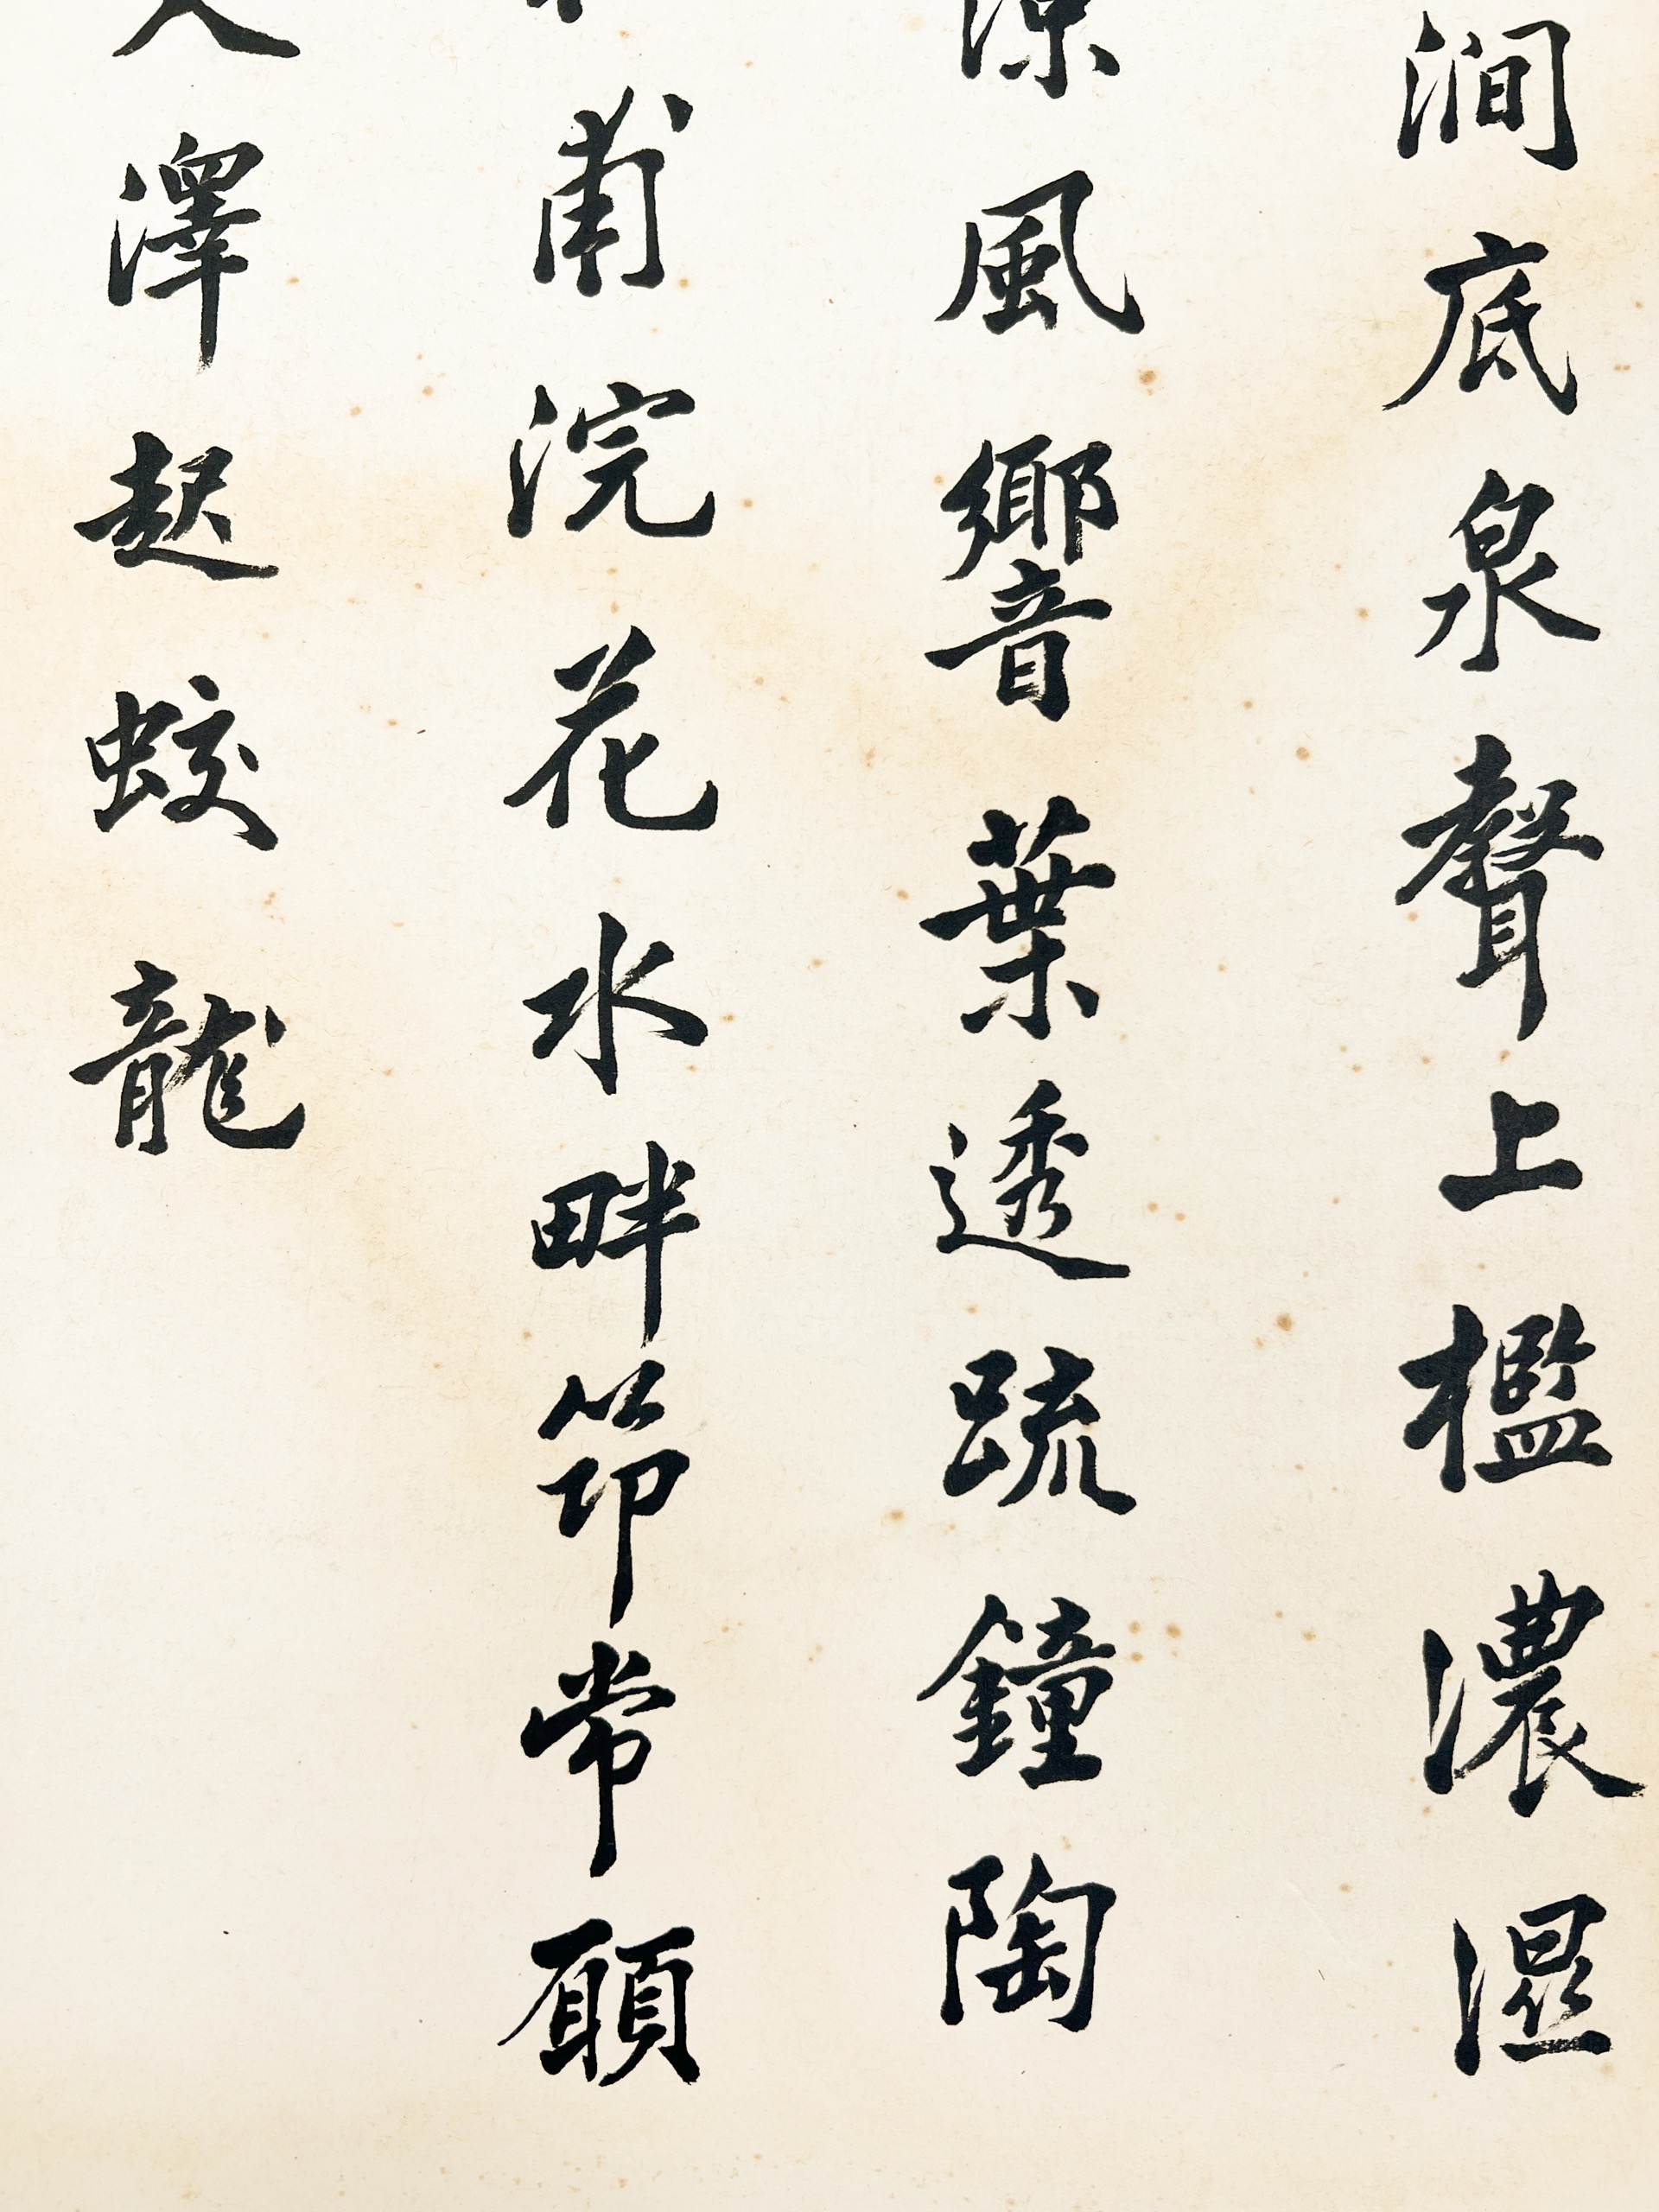 澗底泉聲上檻濃濕
涼風響葉透疏鐘陶
甫浣花水畔筇常願
人澤起蛟龍